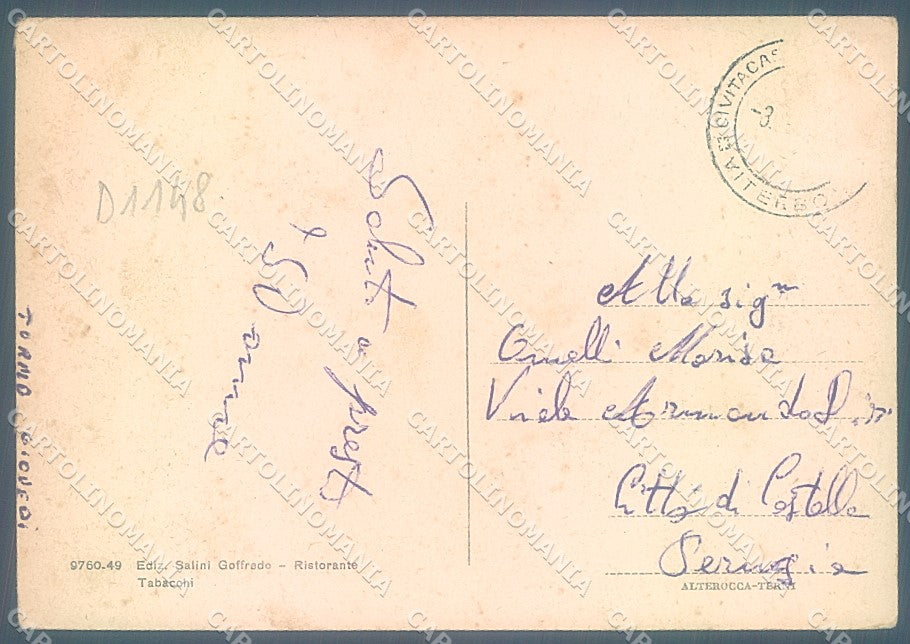 CIVITACAS
VITERBO
-8.
D1148
Saluti a presto
Alla sig.na
Marisa
Viale Armando
Città di Castello
Perugia
TORNO GIOVEDI
9760-49 Ediz. Salini Goffredo - Ristorante
Tabacchi
ALTEROCCA-TERNI
CARTOLINOMANIA